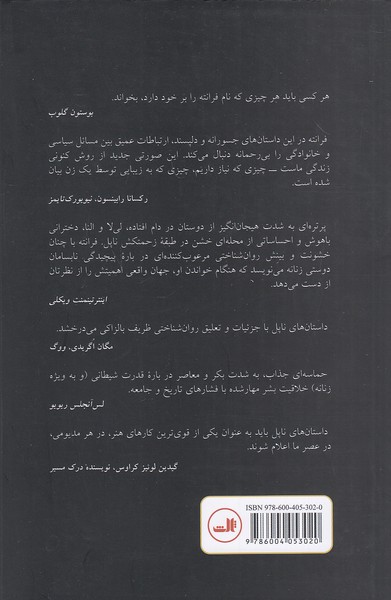 هر کسی باید هر چیزی که نام فرانته را بر خود دارد، بخواند.
بوستون گلوب
فرانته در این داستان‌های جسورانه و دلپسند، ارتباطات عمیق بین مسائل سیاسی
و خانوادگی را بی‌رحمانه دنبال می‌کند. این صورتی جدید از روش کنونی
زندگی ماست ــ چیزی که نیاز داریم، چیزی که به زیبایی توسط یک زن بیان
شده است.
رکسانا رابینسون، نیویورک‌تایمز
پرتره‌ای به شدت هیجان‌انگیز از دوستان در دام افتاده، لی‌لا و النا، دخترانی
باهوش و احساساتی از محله‌ای خشن در طبقهٔ زحمتکش ناپل. فرانته با چنان
خشونت و بینش روان‌شناختی مرعوب‌کننده‌ای در بارهٔ پیچیدگی نابسامان
دوستی زنانه می‌نویسد که هنگام خواندن او، جهان واقعی اهمیتش را از نظرتان
از دست می‌دهد.
اینترتینمنت ویکلی
داستان‌های ناپل با جزئیات و تعلیق روان‌شناختی ظریف بالزاکی می‌درخشد.
مگان اُگریدی، ووگ
حماسه‌ای جذاب، به شدت بکر و معاصر در بارهٔ قدرت شیطانی (و به ویژه
زنانه) خلاقیت بشر مهارشده با فشارهای تاریخ و جامعه.
لس‌آنجلس ریویو
داستان‌های ناپل باید به عنوان یکی از قوی‌ترین کارهای هنر، در هر مدیومی،
در عصر ما اعلام شوند.
گیدین لوئیز کراوس، نویسندهٔ درک مسیر
ISBN 978-600-405-302-0
ثالث
9 786004 053020